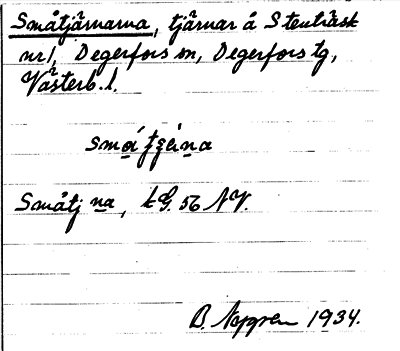 Småtjärnarna, tjärnar å Stenträsk
nr 1, Degerfors sn, Degerfors tg,
Västerb. l.
Småtj na, k G. 56 NV.
B. 1934.